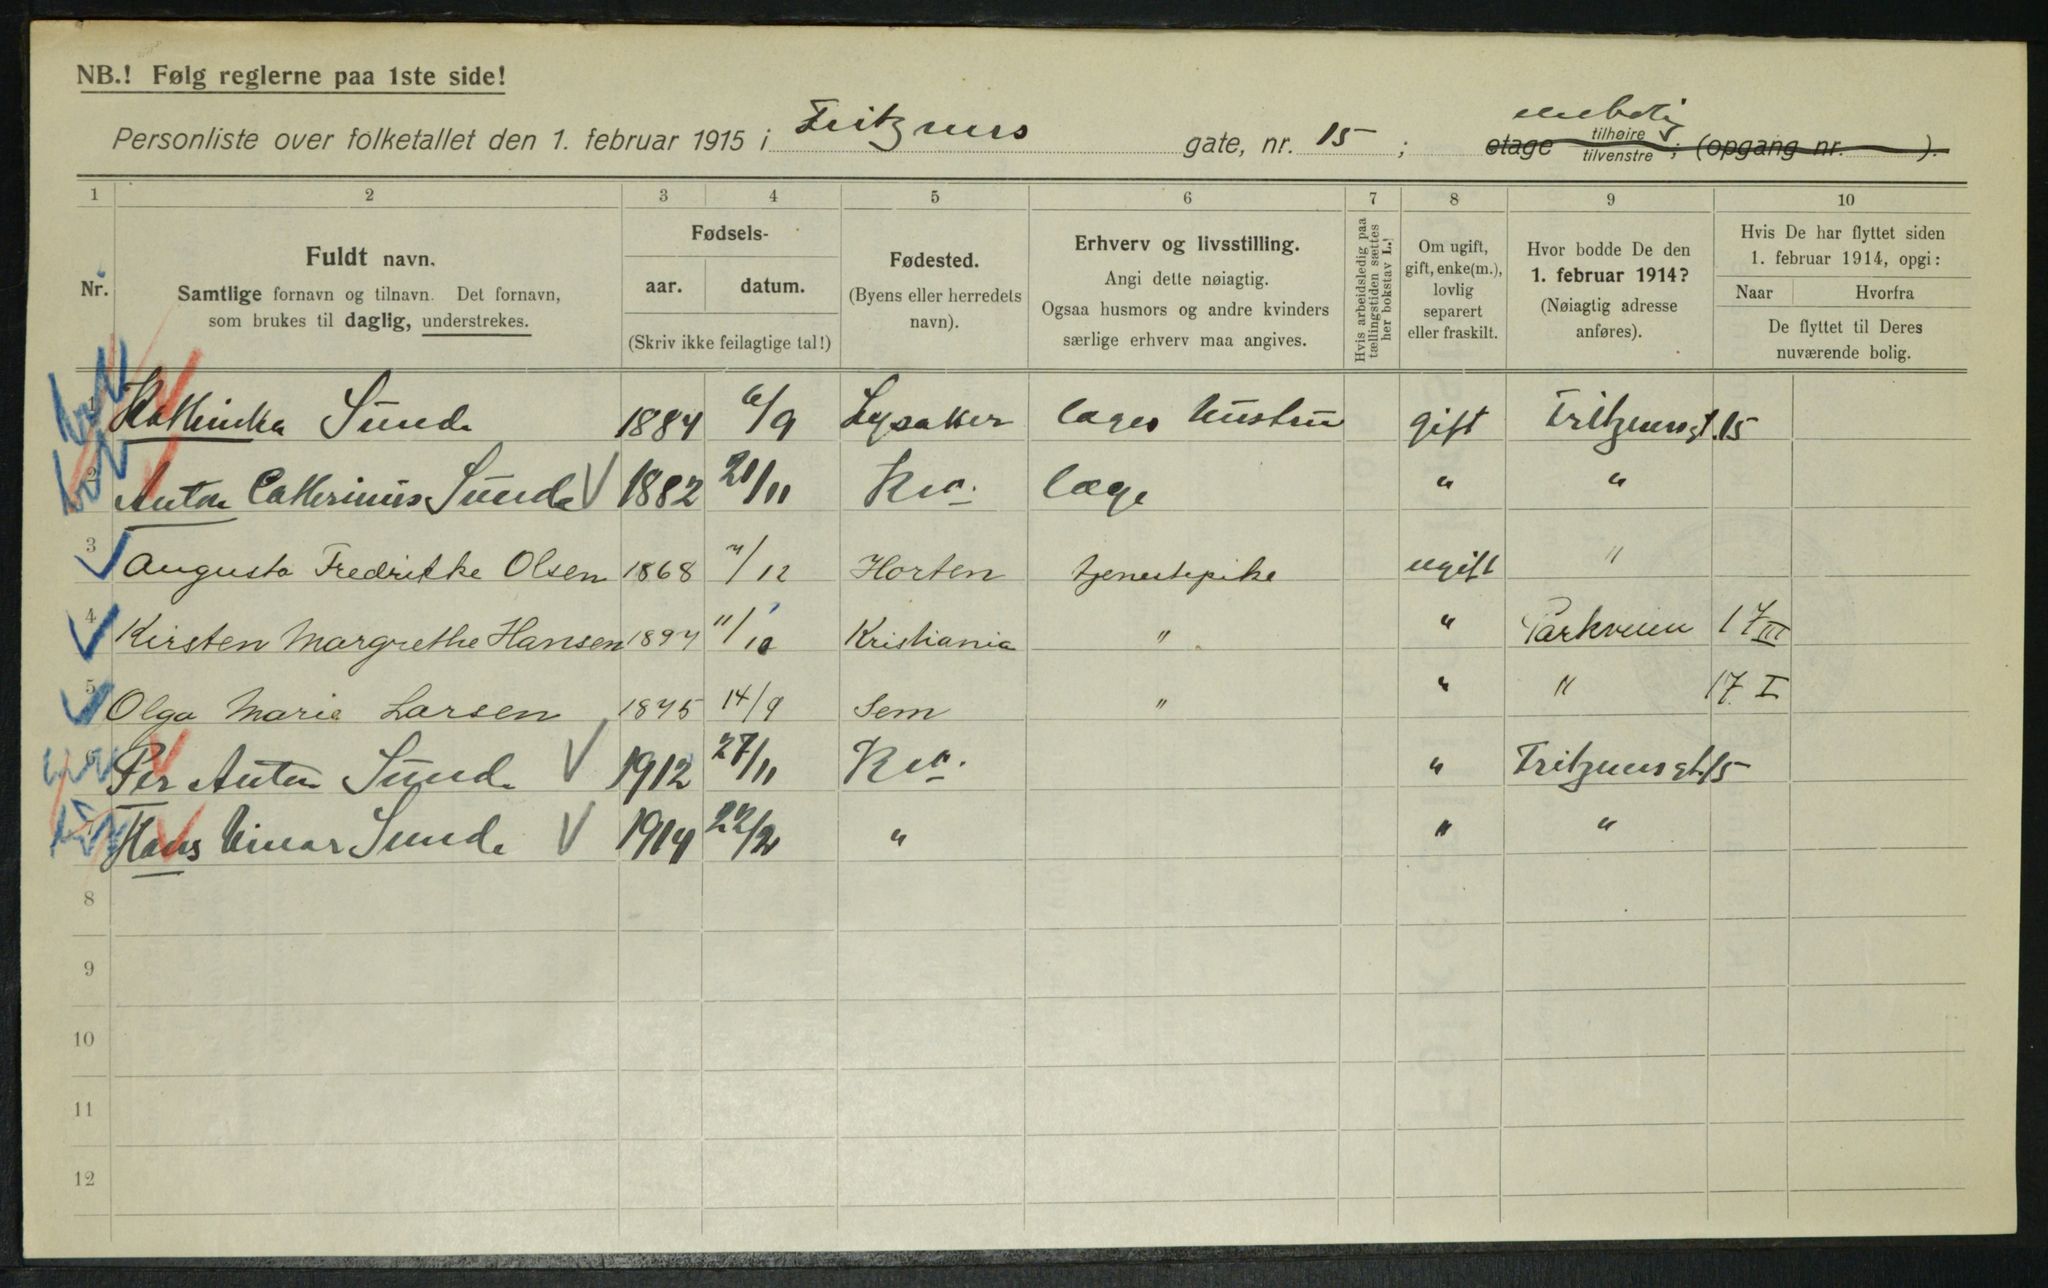 NB.! Følg reglerne paa 1ste side!
Personliste over folketallet den 1. februar 1915 i Fritzners gate, nr. 15; enebolig etage tilhøire tilvenstre; (opgang nr. ).
1 2 3 4 5 6 7 8 9 10
Nr.
Fuldt navn.
Samtlige fornavn og tilnavn. Det fornavn,
som brukes til daglig, understrekes.
Fødsels-
aar. datum.
(Skriv ikke feilagtige tal!)
Fødested.
(Byens eller herredets
navn).
Erhverv og livsstilling.
Angi dette nøiagtig.
Ogsaa husmors og andre kvinders
særlige erhverv maa angives.
Hvis arbeidsledig paa
tællingstiden sættes
her bokstav L.!
Om ugift,
gift, enke(m.),
lovlig
separert
eller fraskilt.
Hvor bodde De den
1. februar 1914?
(Nøiagtig adresse
anføres).
Hvis De har flyttet siden
1. februar 1914, opgi:
Naar Hvorfra
De flyttet til Deres
nuværende bolig.
1 Kathinka Sunde 1884 6/9 Lysaker læges hustru gift Fritznersgt. 15
2 Anton Catherinus Sunde 1882 21/11 Kra. læge " "
3 Augusta Fredrikke Olsen 1868 4/12 Horten tjenestepike ugift "
4 Kirsten Margrethe Hansen 1894 11/10 Kristiania " " Parkveien 17 III
5 Olga Marie Larsen 1895 14/9 Sem " " " 17 I
6 Per Anton Sunde 1912 27/11 Kra. " Fritznersgt. 15
7 Hans Einar Sunde 1914 22/2 " " "
8
9
10
11
12